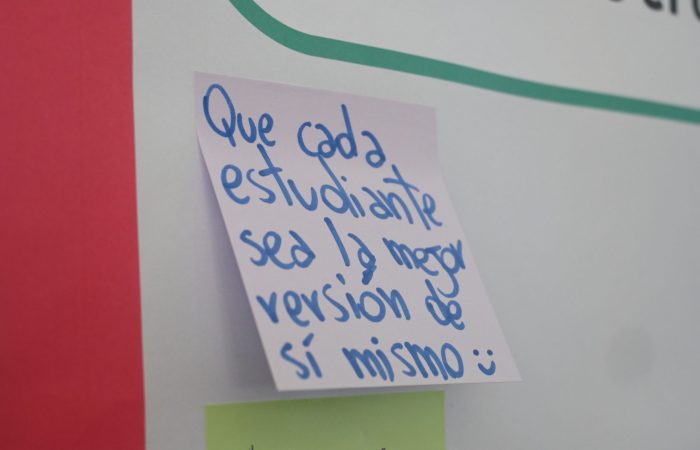 Que cada
estudiante
sea la mejor
versión de
sí mismo :)